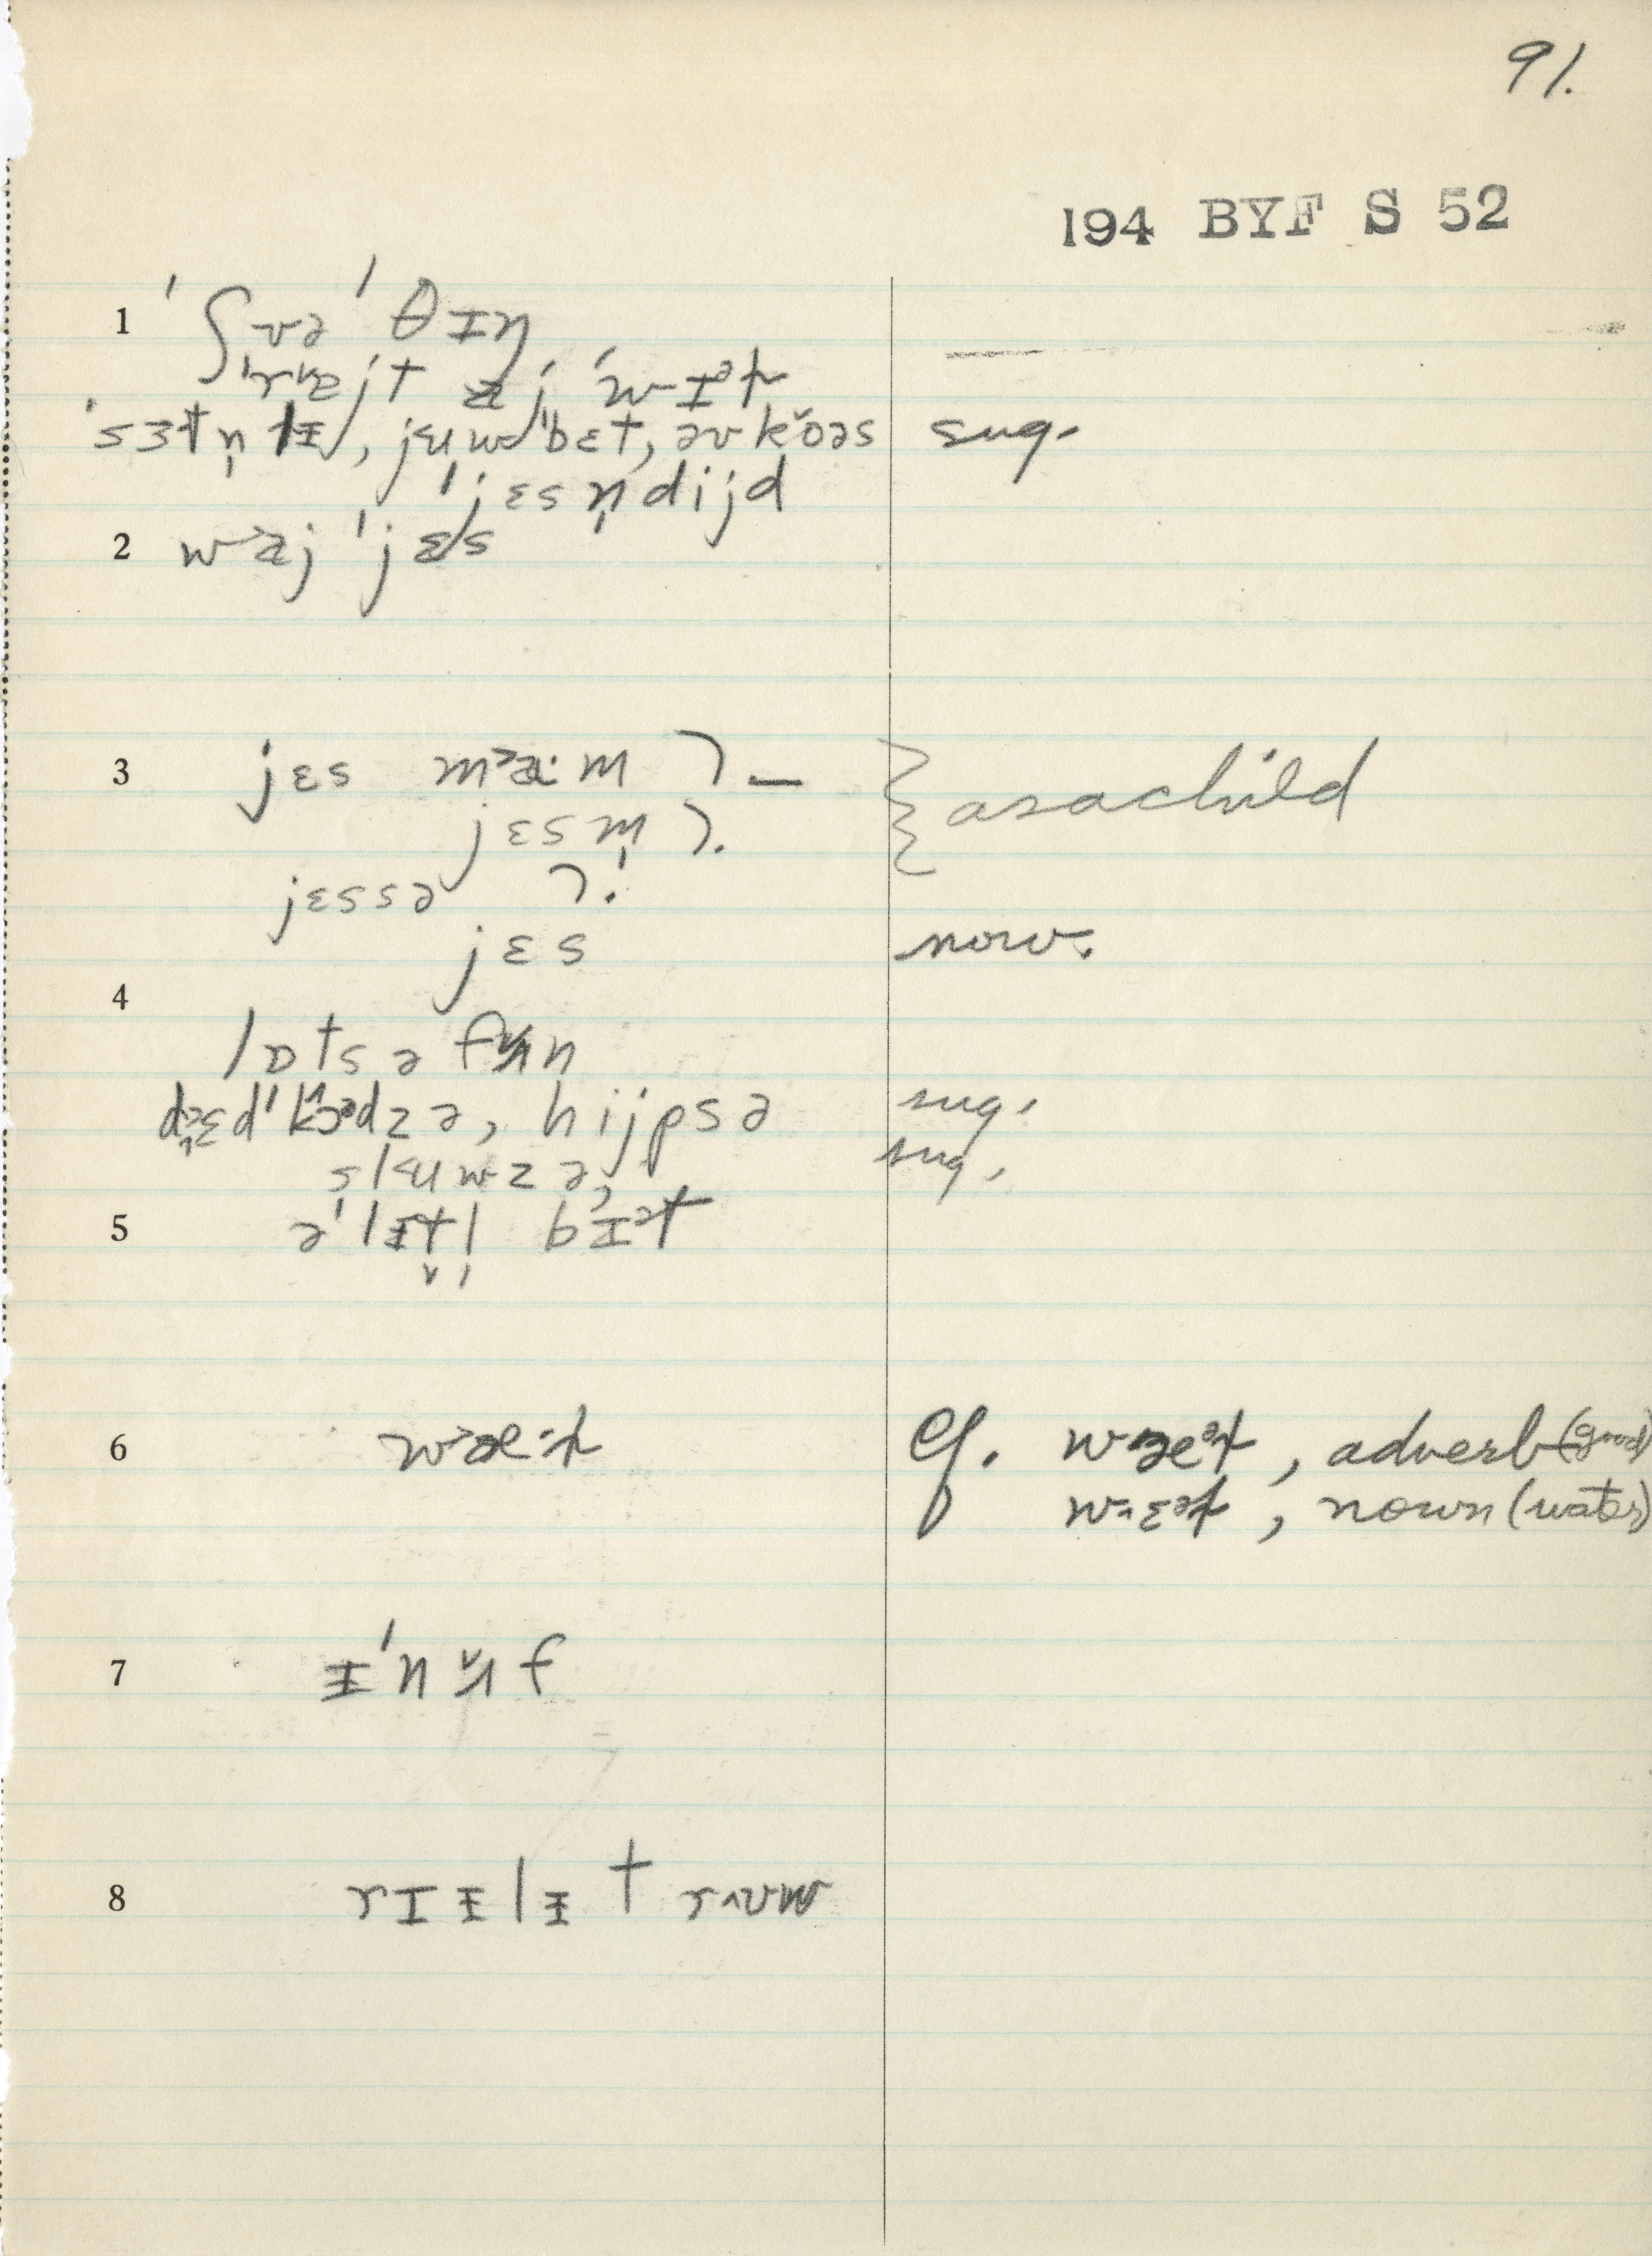 91.
194 BYF S 52
1 ˈʃʊə ˈθɪŋ
ˈraɪjt aj ˈwɪəɫ
ˈsɜtn̩lɨ, jʉwˈbɛt, əv kŏəs sug.
ˈjɛsn̩dijd
2 waj ˈjɛs
3 jɛs maːm ⁊ — } as a child
jɛsm̩ ⁊.
jɛssə ⁊.
jɛs now.
4
lɒtsə fʌn
kɔədzə, hijpsə sug.
slʉwzə, sug.
5 əˈlɨt̬l̩ bɪət
6 wæːɫ Cf. wæəɫ, adverb (good)
wɛəɫ, noun (water)
7 ɨˈnʌf
8 rɪɨlɨ trʊw